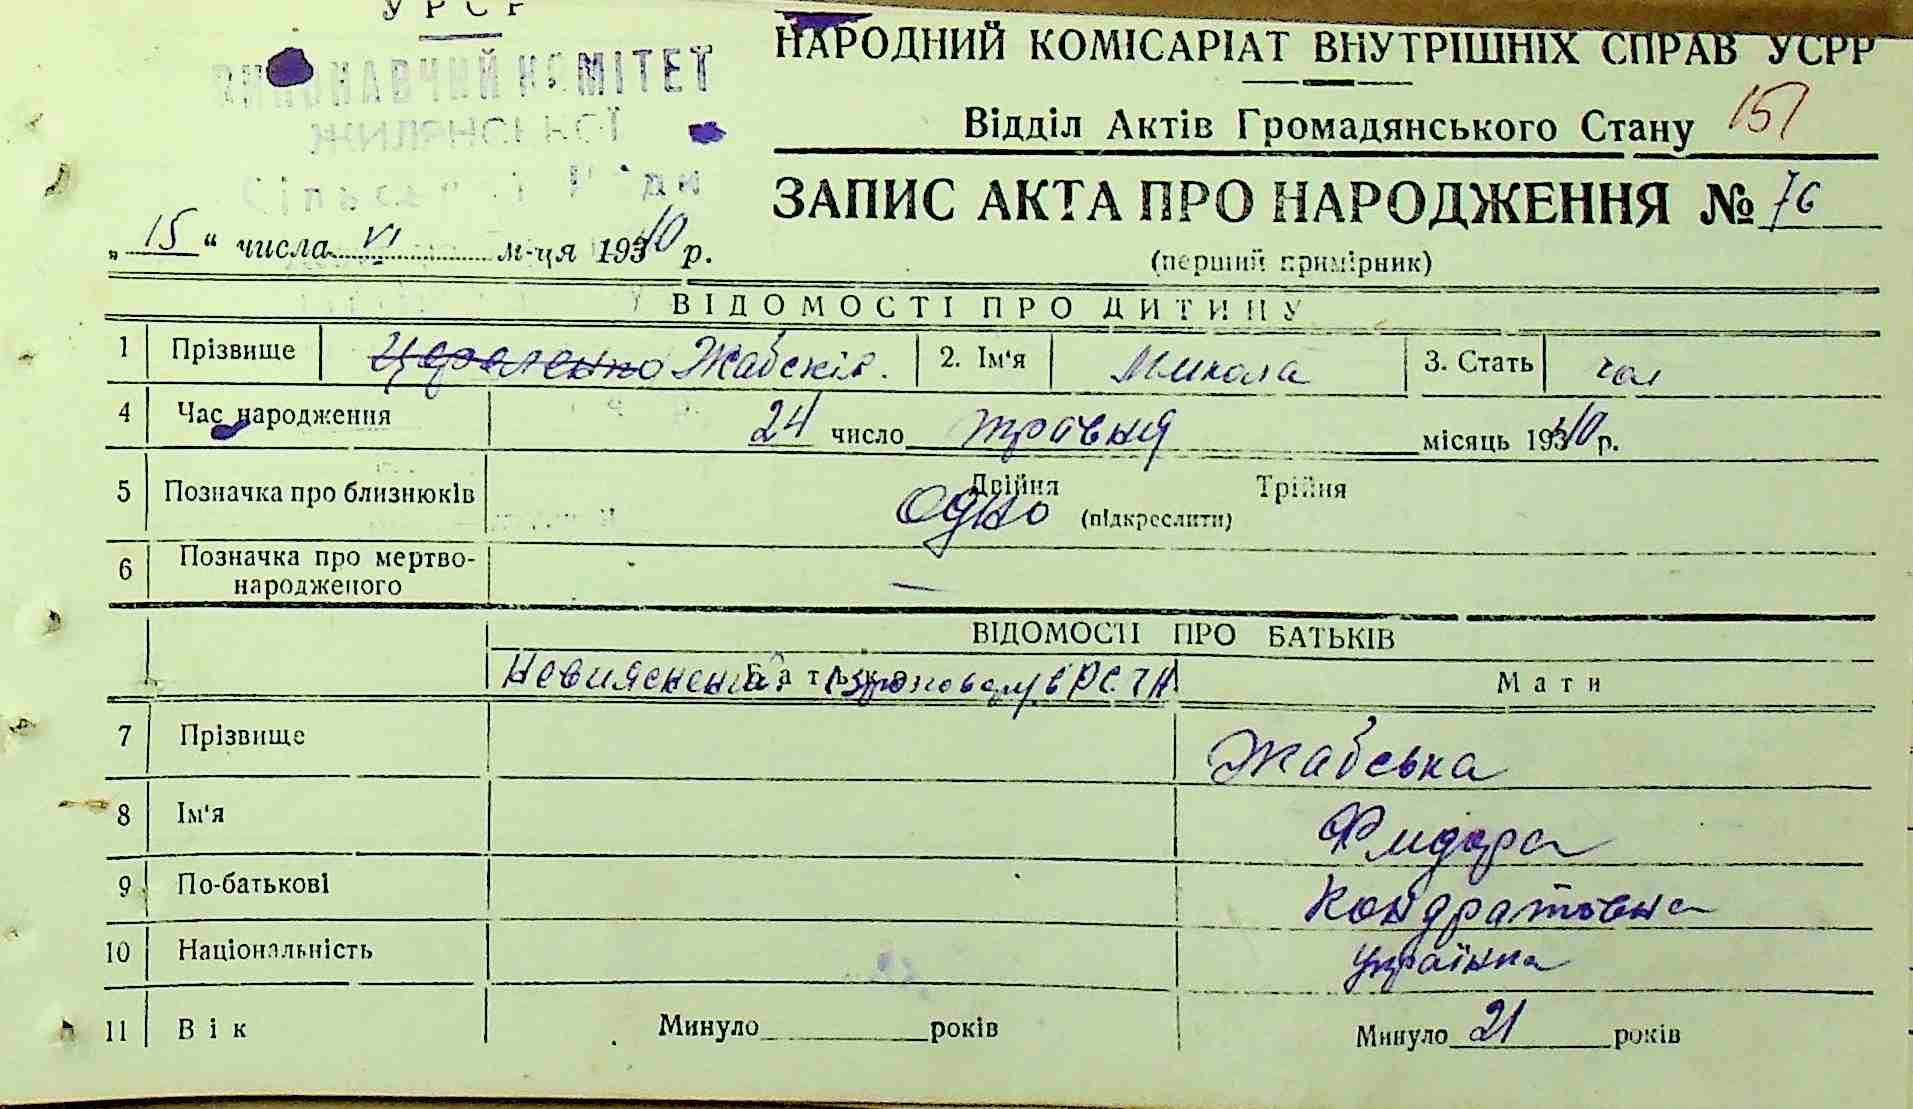 УРСР
ВИКОНАВЧИЙ КОМІТЕТ
ЖИЛЯНСЬКОЇ
Сільської Ради
НАРОДНИЙ КОМІСАРІАТ ВНУТРІШНІХ СПРАВ УСРР
Відділ Актів Громадянського Стану 151
ЗАПИС АКТА ПРО НАРОДЖЕННЯ № 76
„ 15 “ числа VI м-ця 19340 р.
(перший примірник)
ВІДОМОСТІ ПРО ДИТИНУ
1 Прізвище Жабскій. 2. Ім'я Микола 3. Стать чол
4 Час народження 24 число травня місяць 19340 р.
5 Позначка про близнюків Двійня Трійня
Одно (підкреслити)
6 Позначка про мертво-
народженого —
ВІДОМОСТІ ПРО БАТЬКІВ
Батько Мати
7 Прізвище Жабська
8 Ім'я Фидора
9 По-батькові Кондратовна
10 Національність Українка
11 Вік Минуло років Минуло 21 років